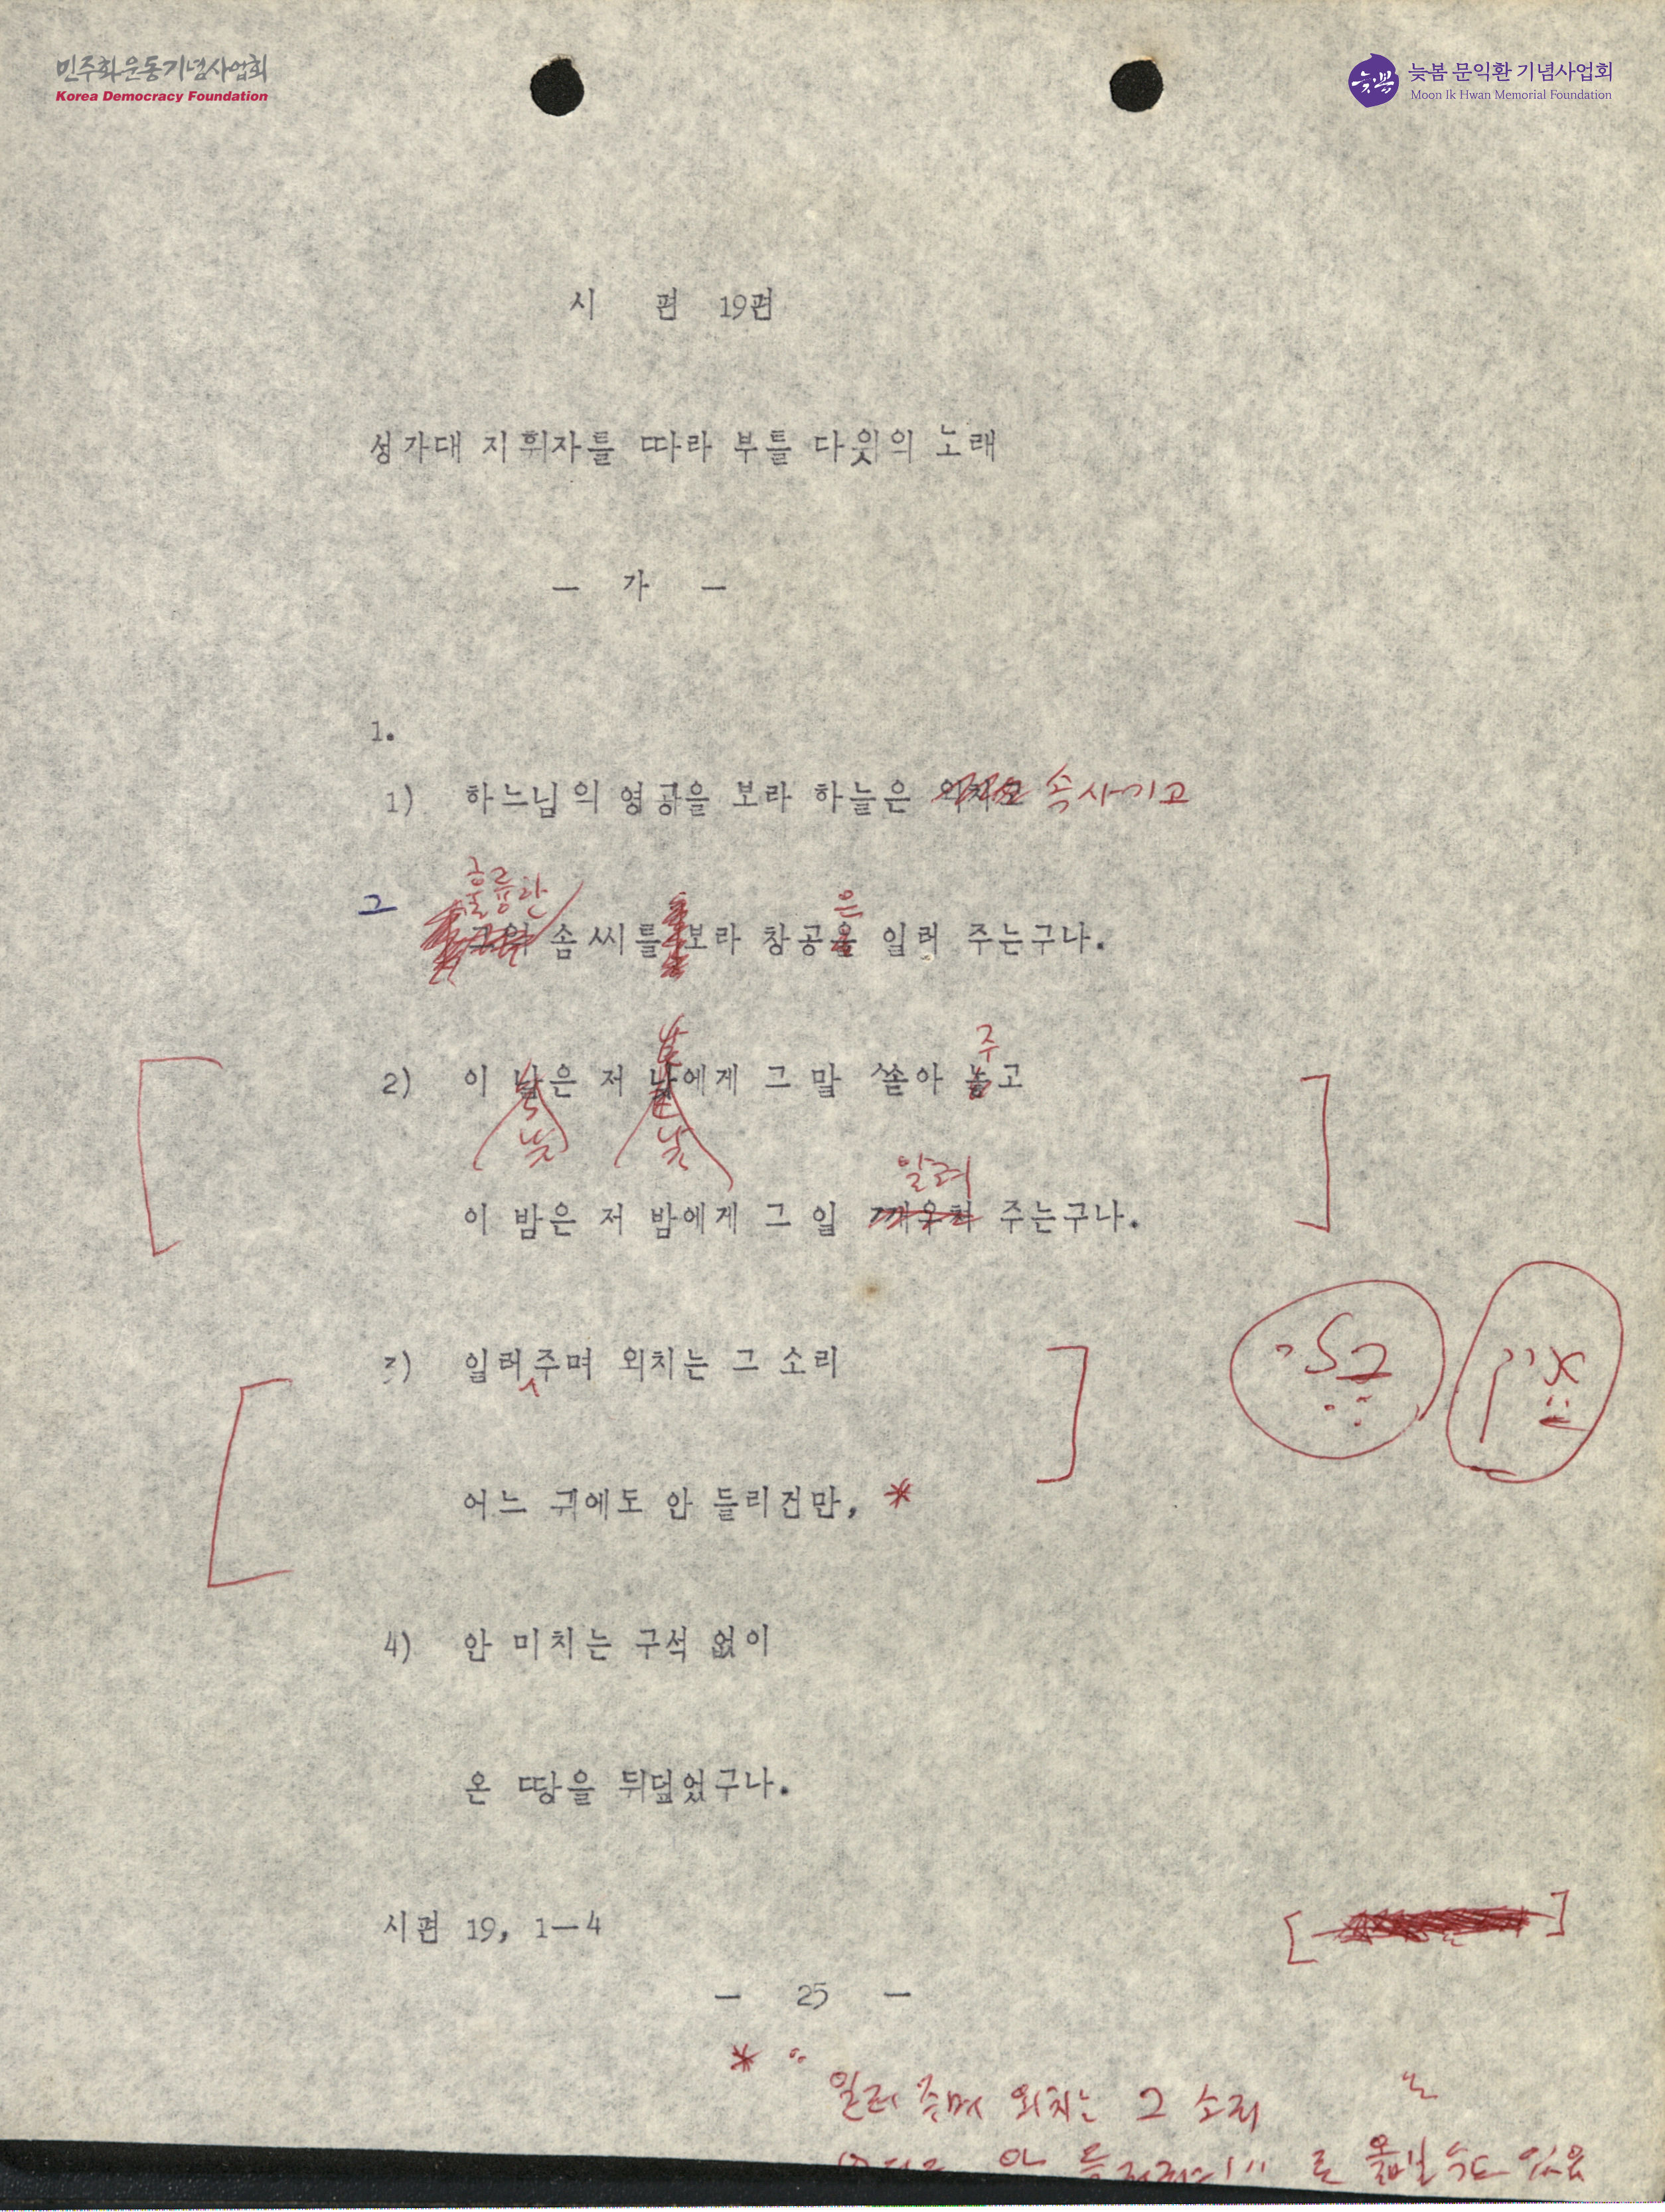 민주화운동기념사업회
Korea Democracy Foundation
늦봄
늦봄 문익환 기념사업회
Moon Ik Hwan Memorial Foundation
시 편 19편
성가대 지휘자를 따라 부를 다윗의 노래
— 가 —
1.
1) 하느님의 영광을 보라 하늘은 외치고 속사기고
훌륭한
그 그의 솜씨를 보라 창공을 일러 주는구나.
은
주
2) 이 날은 저 날에게 그 말 쏟아 놓고
낮 낮
일러
이 밤은 저 밤에게 그 일 깨우쳐 주는구나.
3) 일러주며 외치는 그 소리
어느 귀에도 안 들리건만, *
בלי
אין
4) 안 미치는 구석 없이
온 땅을 뒤덮었구나.
시편 19, 1—4
— 25 —
* "일러 주며 외치는 그 소리
안 로 옮길 수도 있음